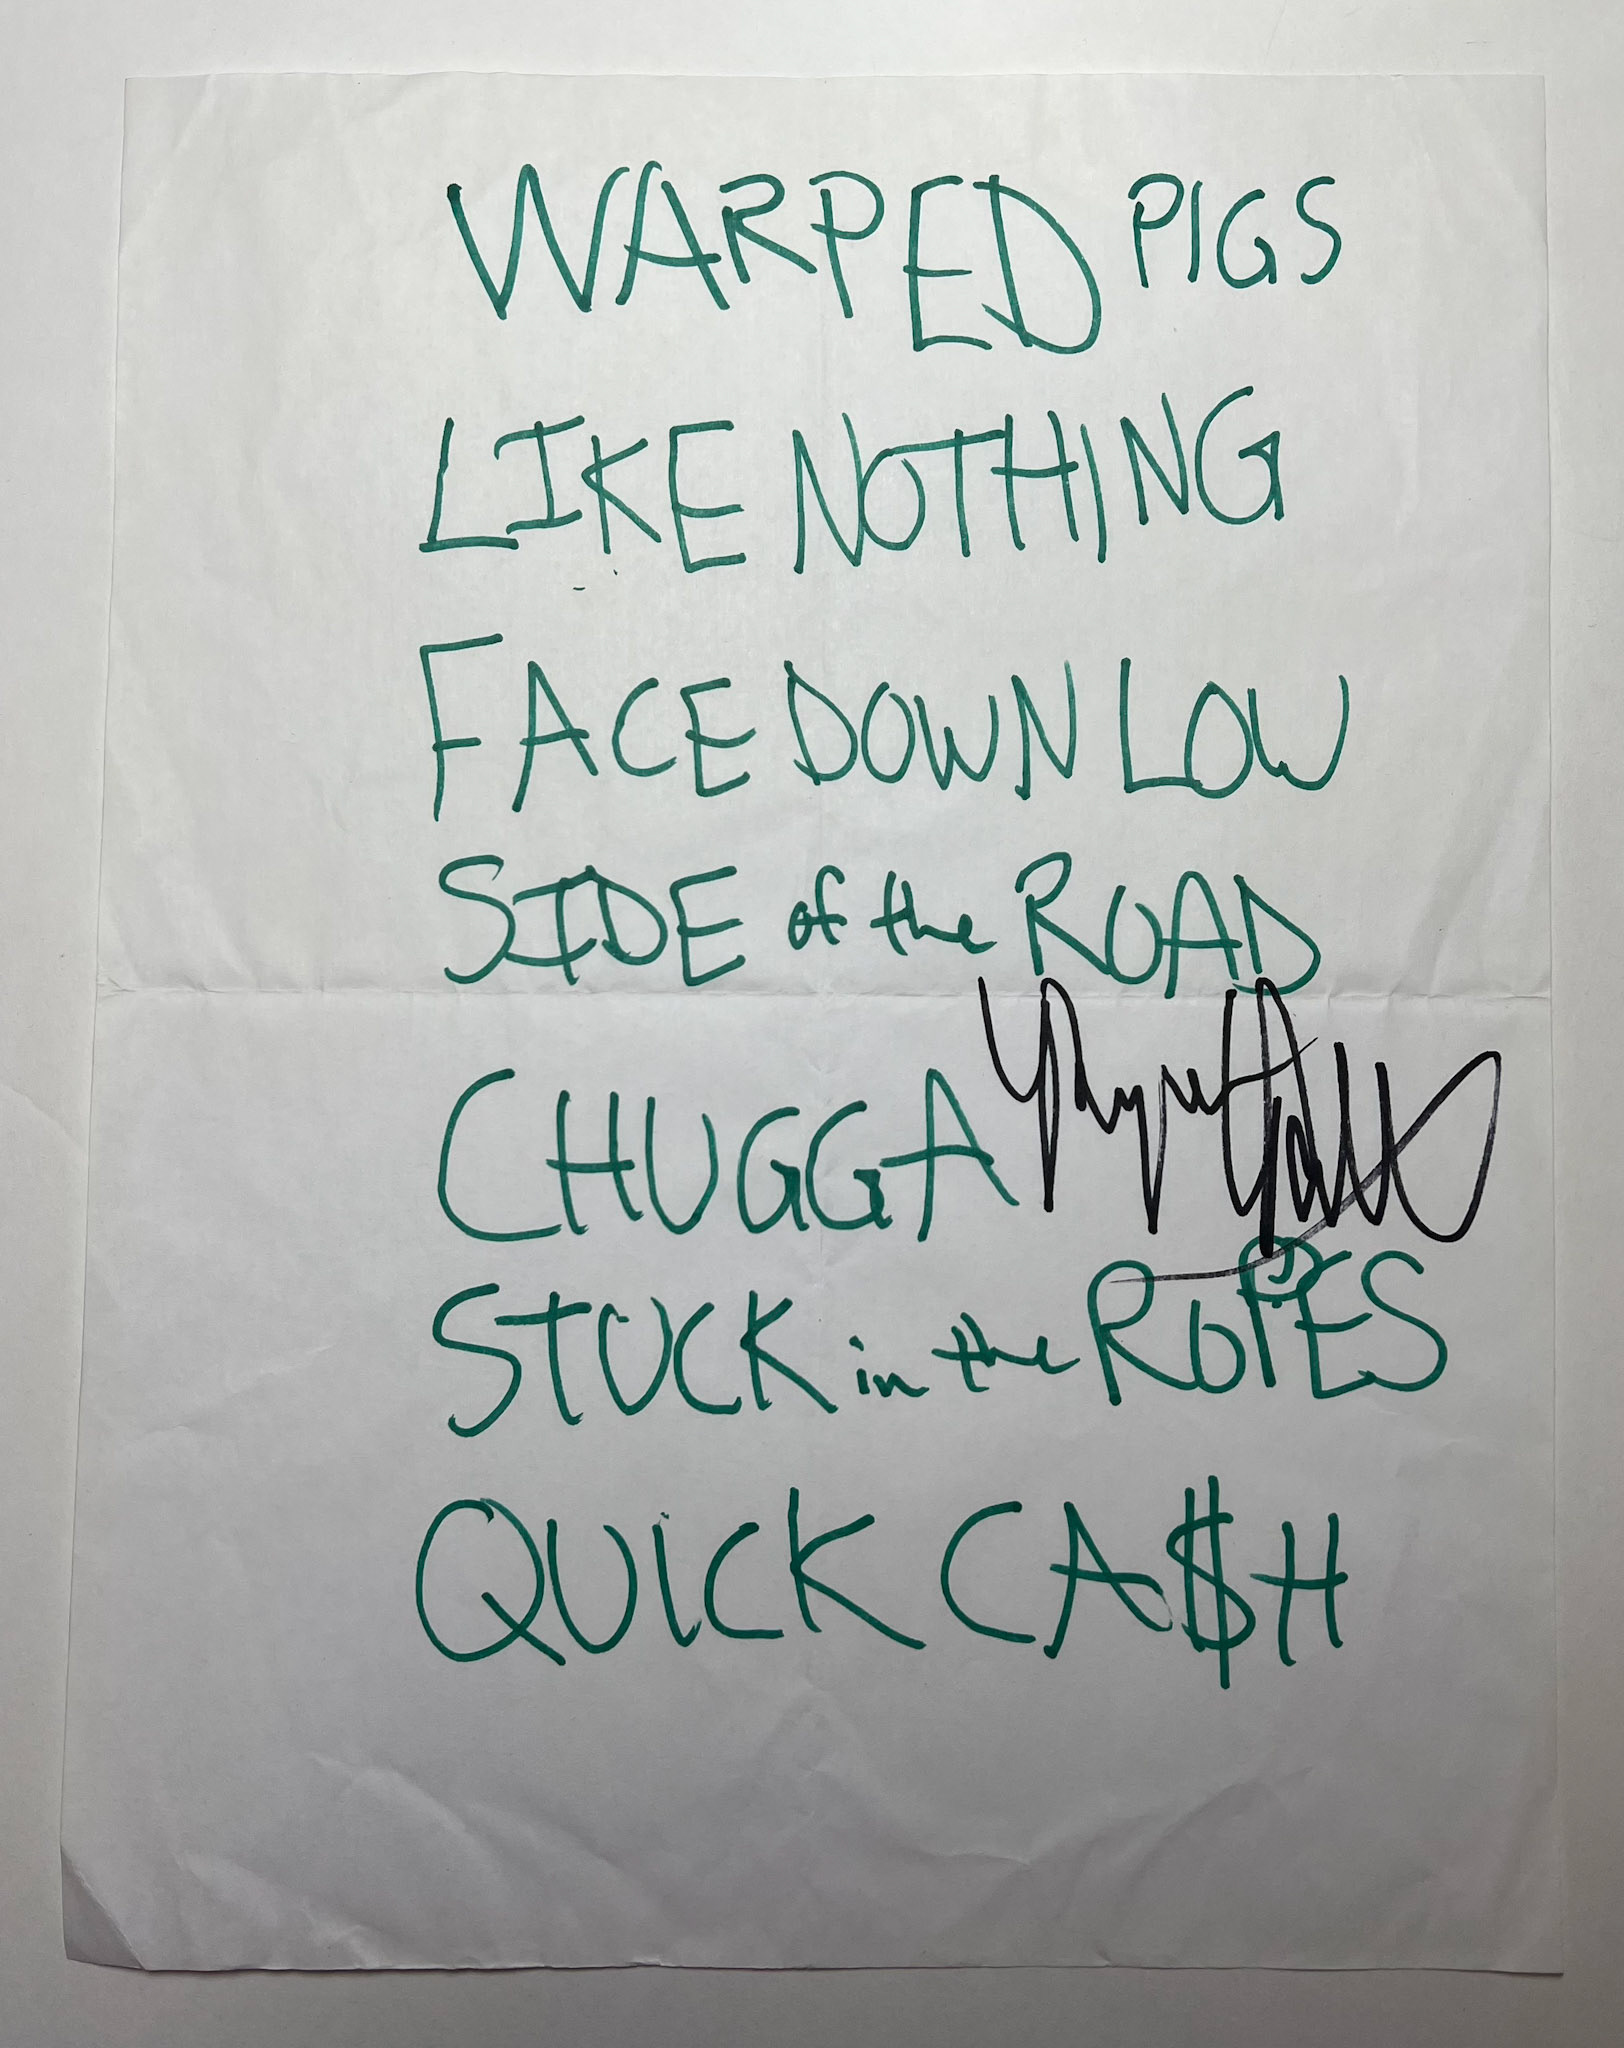 WARPED PIGS
LIKE NOTHING
FACE DOWN LOW
SIDE of the ROAD
CHUGGA
STUCK in the ROPES
QUICK CA$H